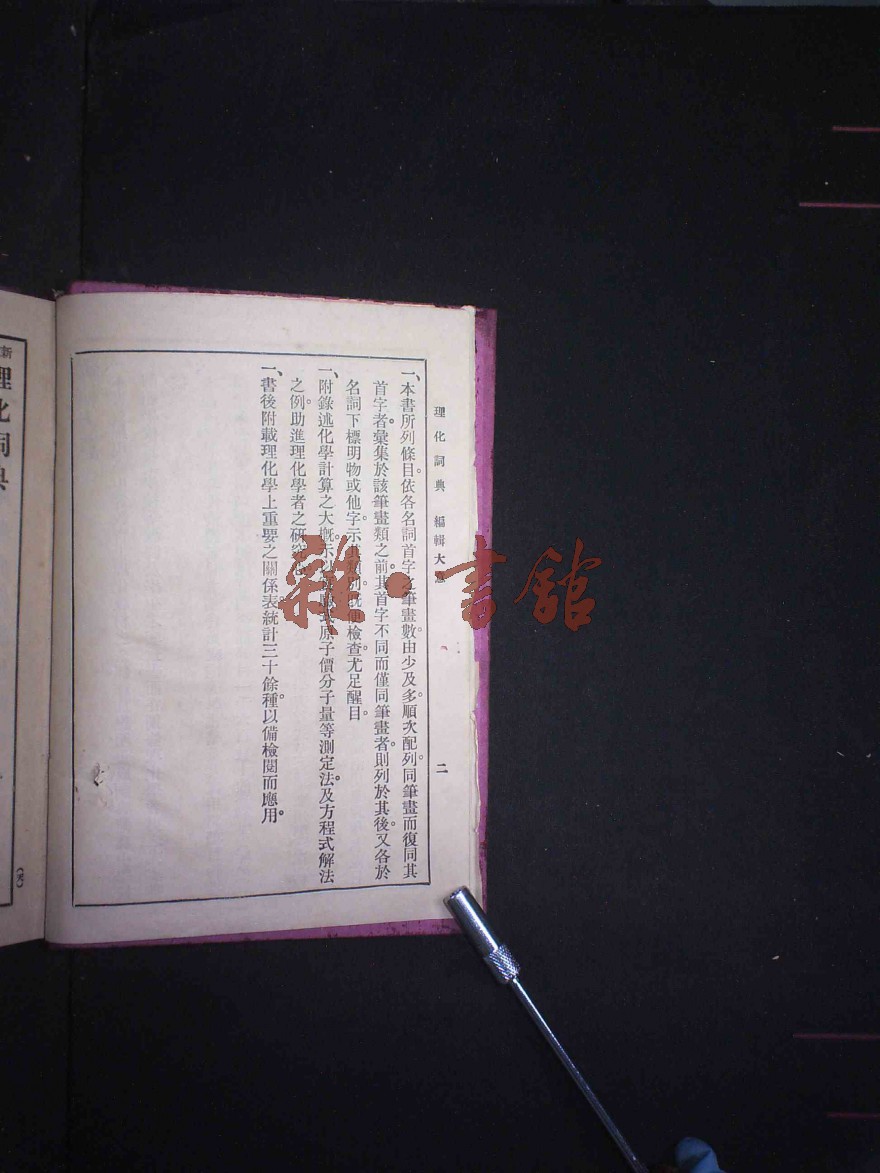 理化詞典 編輯大 二
一、本書所列條目。依各名詞首字之筆畫數。由少及多。順次配列。同筆畫而復同其
首字者。彙集於該筆畫類之前。其首字不同而僅同筆畫者。則列於其後。又各於
名詞下標明物或他字。示其類別。既便檢查。尤足醒目。
一、附錄述化學計算之大槪。示以 原子價分子量等測定法。及方程式解法
之例。助進理化學者之硏究
一、書後附載理化學上重要之關係表。統計三十餘種。以備檢閱而應用。
雜·書館
新
理化詞典